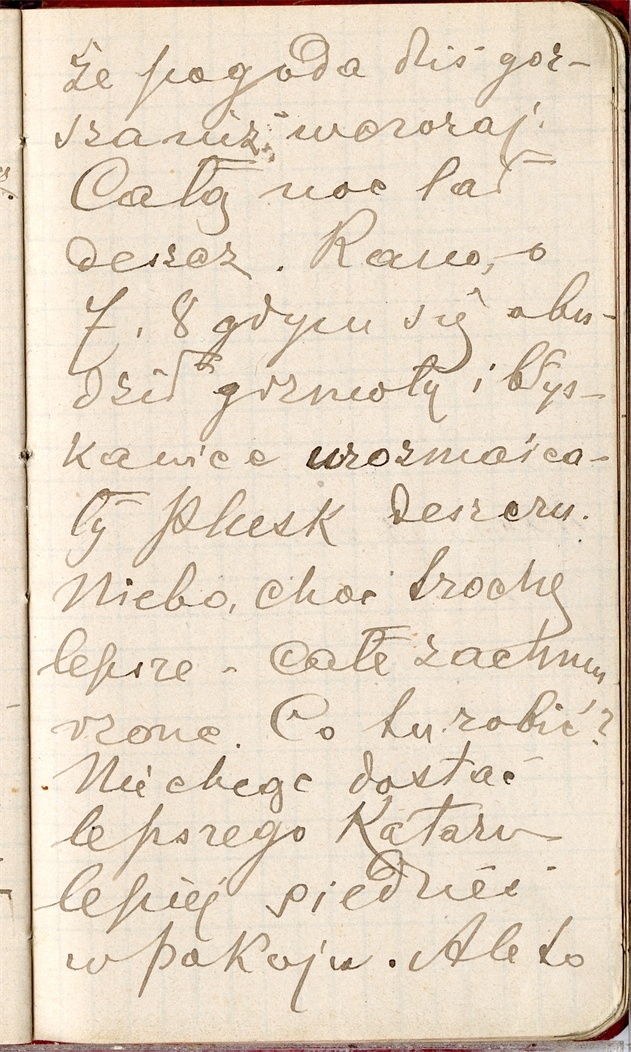 że pogoda dziś gor-
sza niż wczoraj.
Całą noc lał
deszcz. Rano, o
7, 8 gdym się obu-
dził grzmoty i błys-
kawice urozmaica-
ły plusk deszczu.
Niebo, choć trochę
lepsze - całe zachmu
rzone. Co tu robić?
Nie chcąc dostać
lepszego Kataru
lepiej siedzieć
w pokoju. Ale to